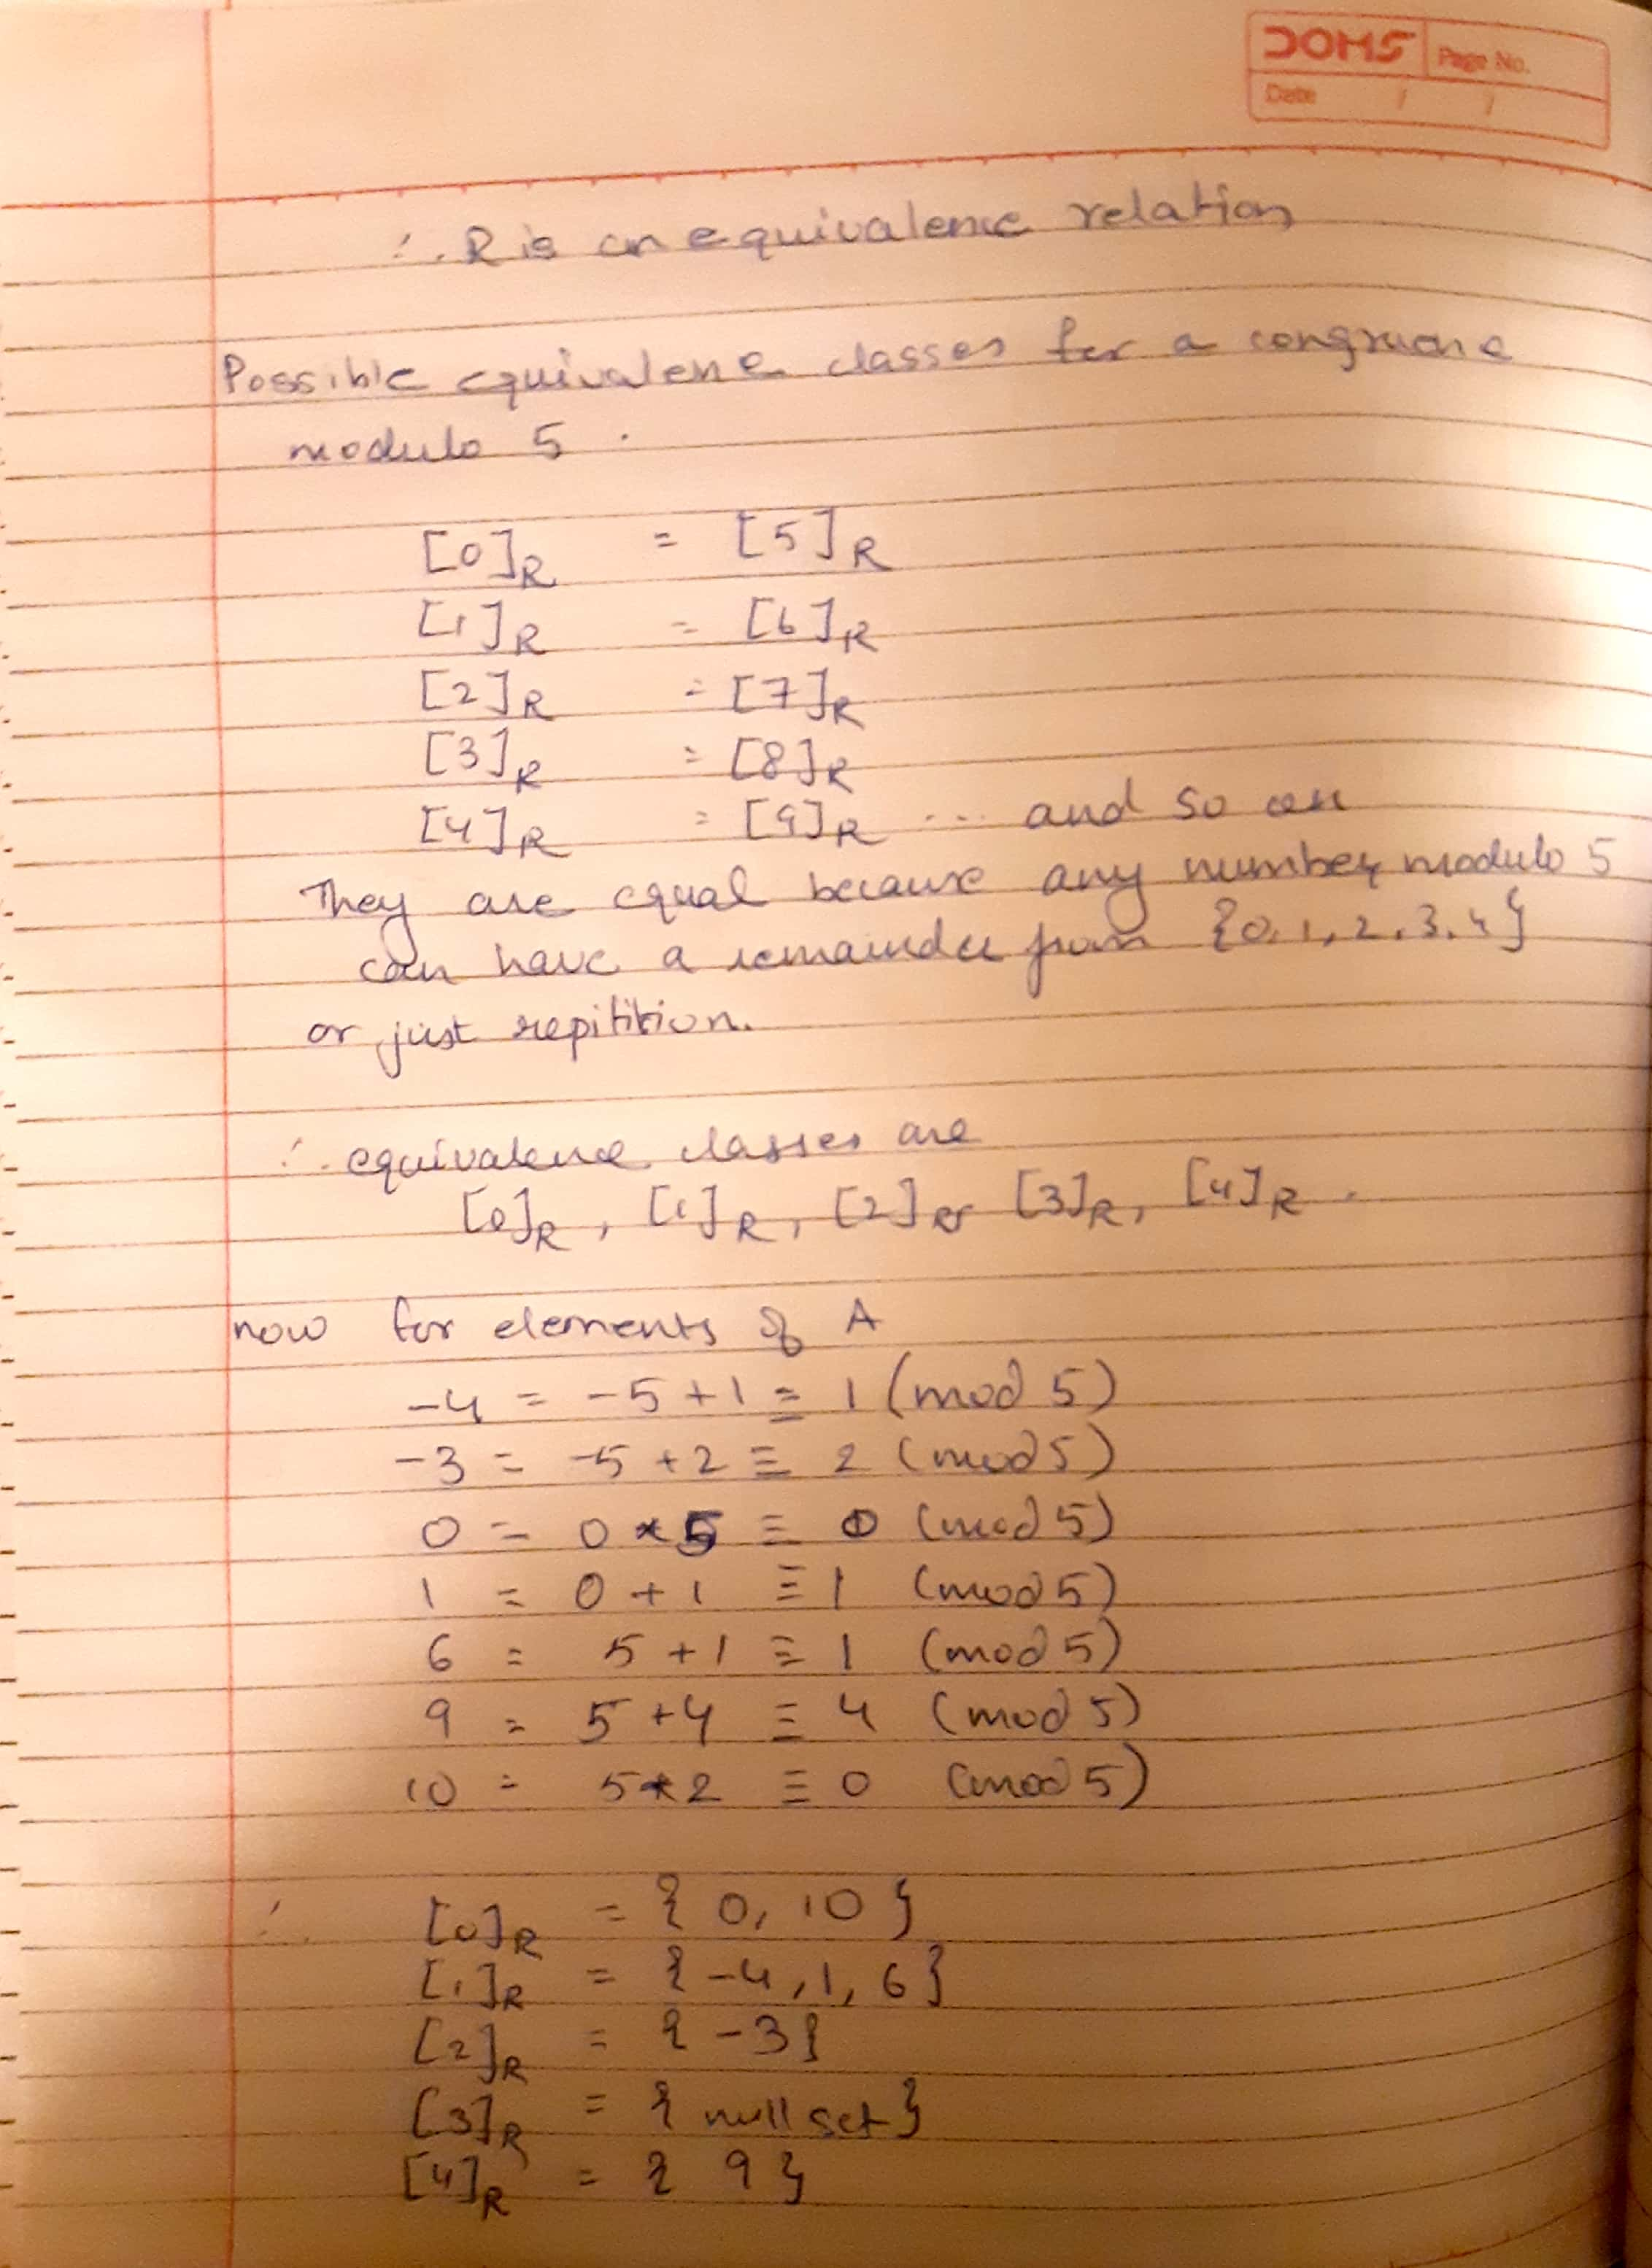 DOMS Page No.
Date / /
∴ R is an equivalence relation
Possible equivalence classes for a congruence
modulo 5.
[0]R = [5]R
[1]R = [6]R
[2]R = [7]R
[3]R = [8]R
[4]R = [9]R ... and so on
They are equal because any number modulo 5
can have a remainder from {0, 1, 2, 3, 4}
or just repitition.
∴ equivalence classes are
[0]R, [1]R, [2]R, [3]R, [4]R.
now for elements of A
-4 = -5+1 ≡ 1 (mod 5)
-3 = -5+2 ≡ 2 (mod 5)
0 = 0*5 ≡ 0 (mod 5)
1 = 0+1 ≡ 1 (mod 5)
6 = 5+1 ≡ 1 (mod 5)
9 = 5+4 ≡ 4 (mod 5)
10 = 5*2 ≡ 0 (mod 5)
∴ [0]R = {0, 10}
[1]R = {-4, 1, 6}
[2]R = {-3}
[3]R = {null set}
[4]R = {9}